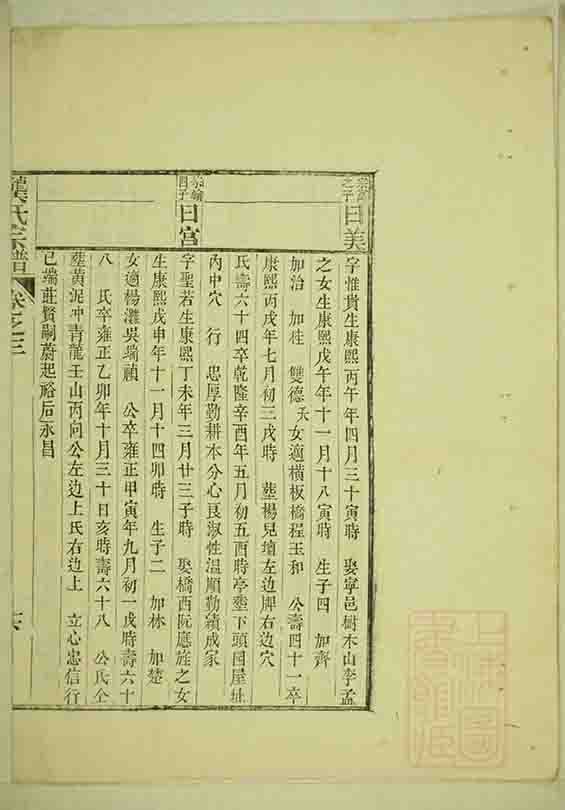 之子
日美
字惟貴生康熙丙午年四月三十寅時 娶寧邑樹木山李孟
之女生康熙戊午年十一月十八寅時 生子四 加齊
加治 加桂 雙德夭 女適橫板橋程玉和 公壽四十一卒
康熙丙戌年七月初三戌時 塟楊兒壇左边脾右边穴
氏壽六十四卒乾隆辛酉年五月初五酉時亭塗下頭囯屋址
內中穴 行 忠厚勤耕本分心良淑性温順勤績成家
日宫
字聖若生康熙丁未年三月廿三子時 娶橋西阮應旌之女
生康熙戊申年十一月十四卯時 生子二 加林 加楚
女適楊灘吳瑞禎 公卒雍正甲寅年九月初一戌時壽六十
八 氏卒雍正乙卯年十月三十日亥時壽六十八 公氏仝
塟黄泥冲青龍壬山丙向公左边上氏右边上 立心忠信行
己端莊賢嗣蔚起裕后永昌
氏宗譜 卷之三